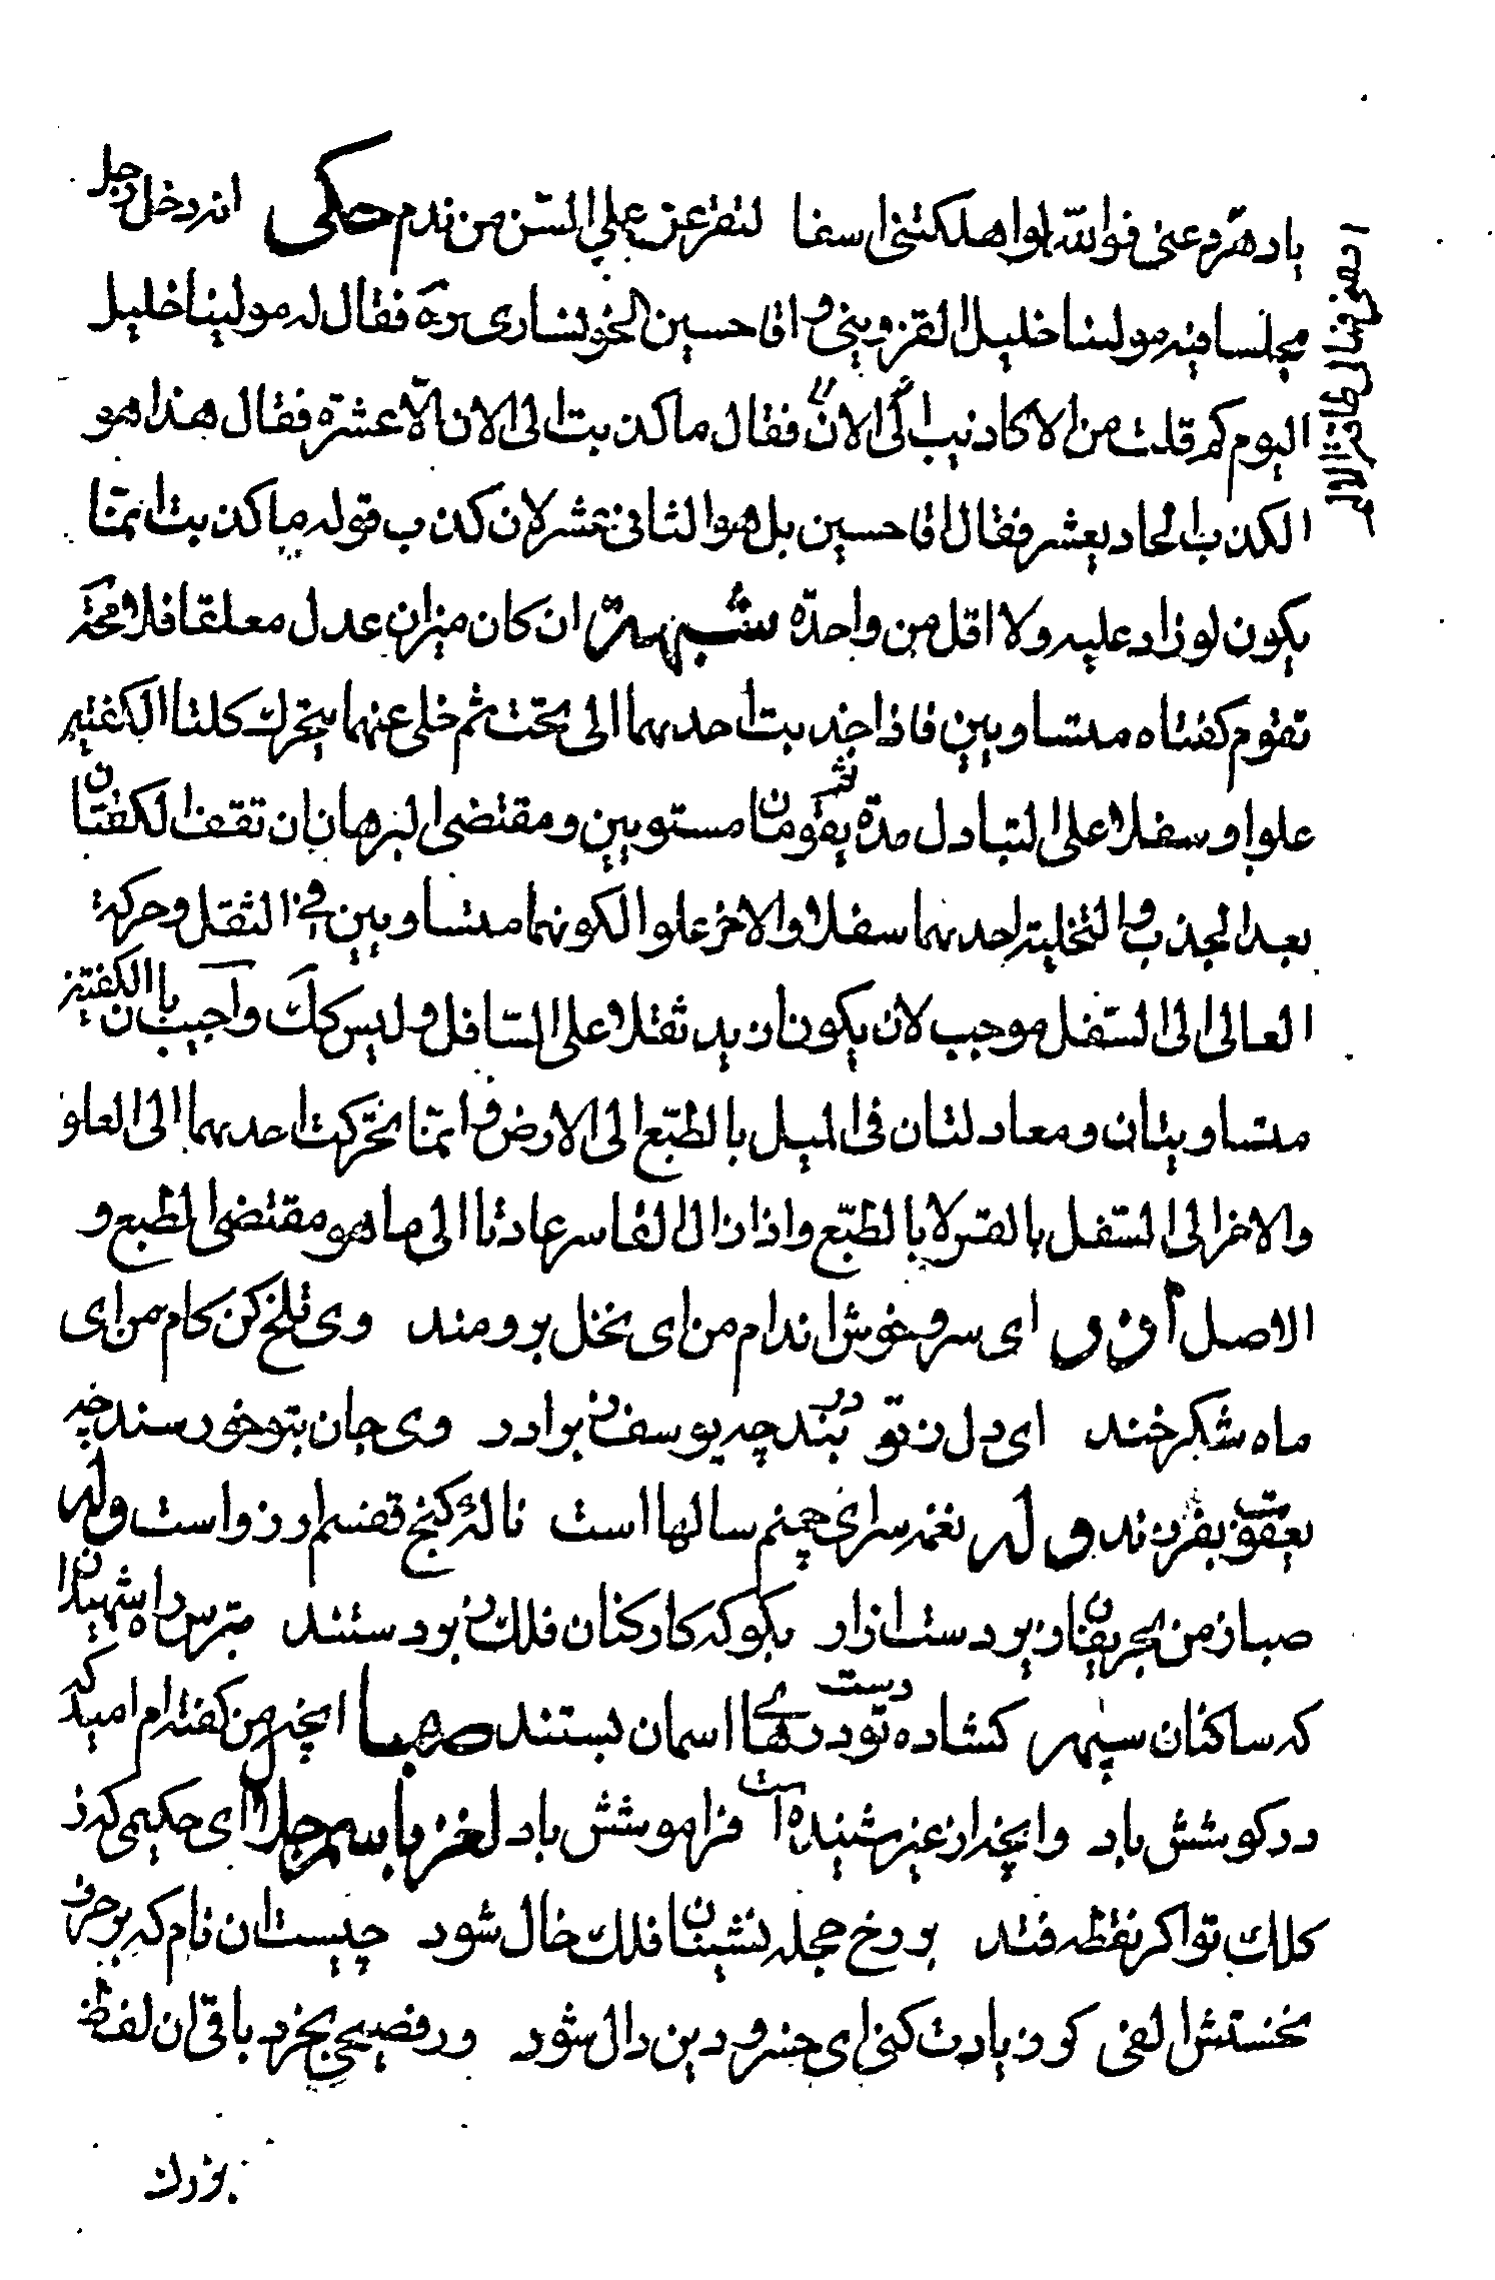 یا دهر دعنی فوالله لو اهلکتنی اسفا لتقرعن علی السن من ندم حکی انه دخل رجل
مجلسا فیه مولینا خلیل القزوینی و اقا حسین الخونساری ره فقال له مولینا خلیل
الیوم کم قلت من الاکاذیب الی الان فقال ما کذبت الی الان الا عشرة فقال هذا هو
الکذب الحادیعشر فقال اقا حسین بل هو الثانی عشر لان کذب قوله ما کذبت انما
یکون لو زاد علیه ولا اقل من واحدة شبهة ان کان میزان عدل معلقا فلا محة
تقوم کفتاه متساویین فاذا جذبت احدیهما الی تحت ثم خلی عنهما یتحرک کلتا الکفتین
علوا و سفلا علی التبادل مدة ثم یقومان مستویین و مقتضی البرهان ان تقف الکفتان
بعد الجذب و التخلیة احدیهما سفلا والاخر علوا لکونهما متساویین فی الثقل و حرکة
العالی الی السفل موجب لان یکون ازید ثقلا علی السافل و لیس کک و اجیب بان الکفتین
متساویتان و معادلتان فی المیل بالطبع الی الارض و انما تحرکت احدیهما الی العلو
والاخر الی السفل بالقسر لا بالطبع واذا زال القاسر عادتا الی ما هو مقتضی الطبع و
الاصل آذر ای سرو خوش اندام من ای نخل برومند وی تلخ کن کام من ای
ماه شکر خند ای دل ز تو در بند چه یوسف ز برادر وی جان بتو خورسند چه
یعقوب بفرزند وله نغمه سرای چمنم سالها است ناله کنج قفسم ارزو است وله
صبا ز من بحریفان زیر دست ازار بکو که کارکنان فلک زبر دستند مترس راه شهیدان
که ساکنان سپهر کشاده دست تو درهای اسمان بستند صهبا انچه من کفته ام امید که
در کوشش باد وانچه از غیر شنیده است فراموشش باد لغز باسم جلال ای حکیمی که ز
کلک تو اکر نقطه فتد بر رخ حجله نشینان فلک خال شود چیست ان نام که بر حرف
نخستش الفی کر زیادت کنی ای خسرو دین دال شود ور فصیحی بخرد باقی ان لفظ